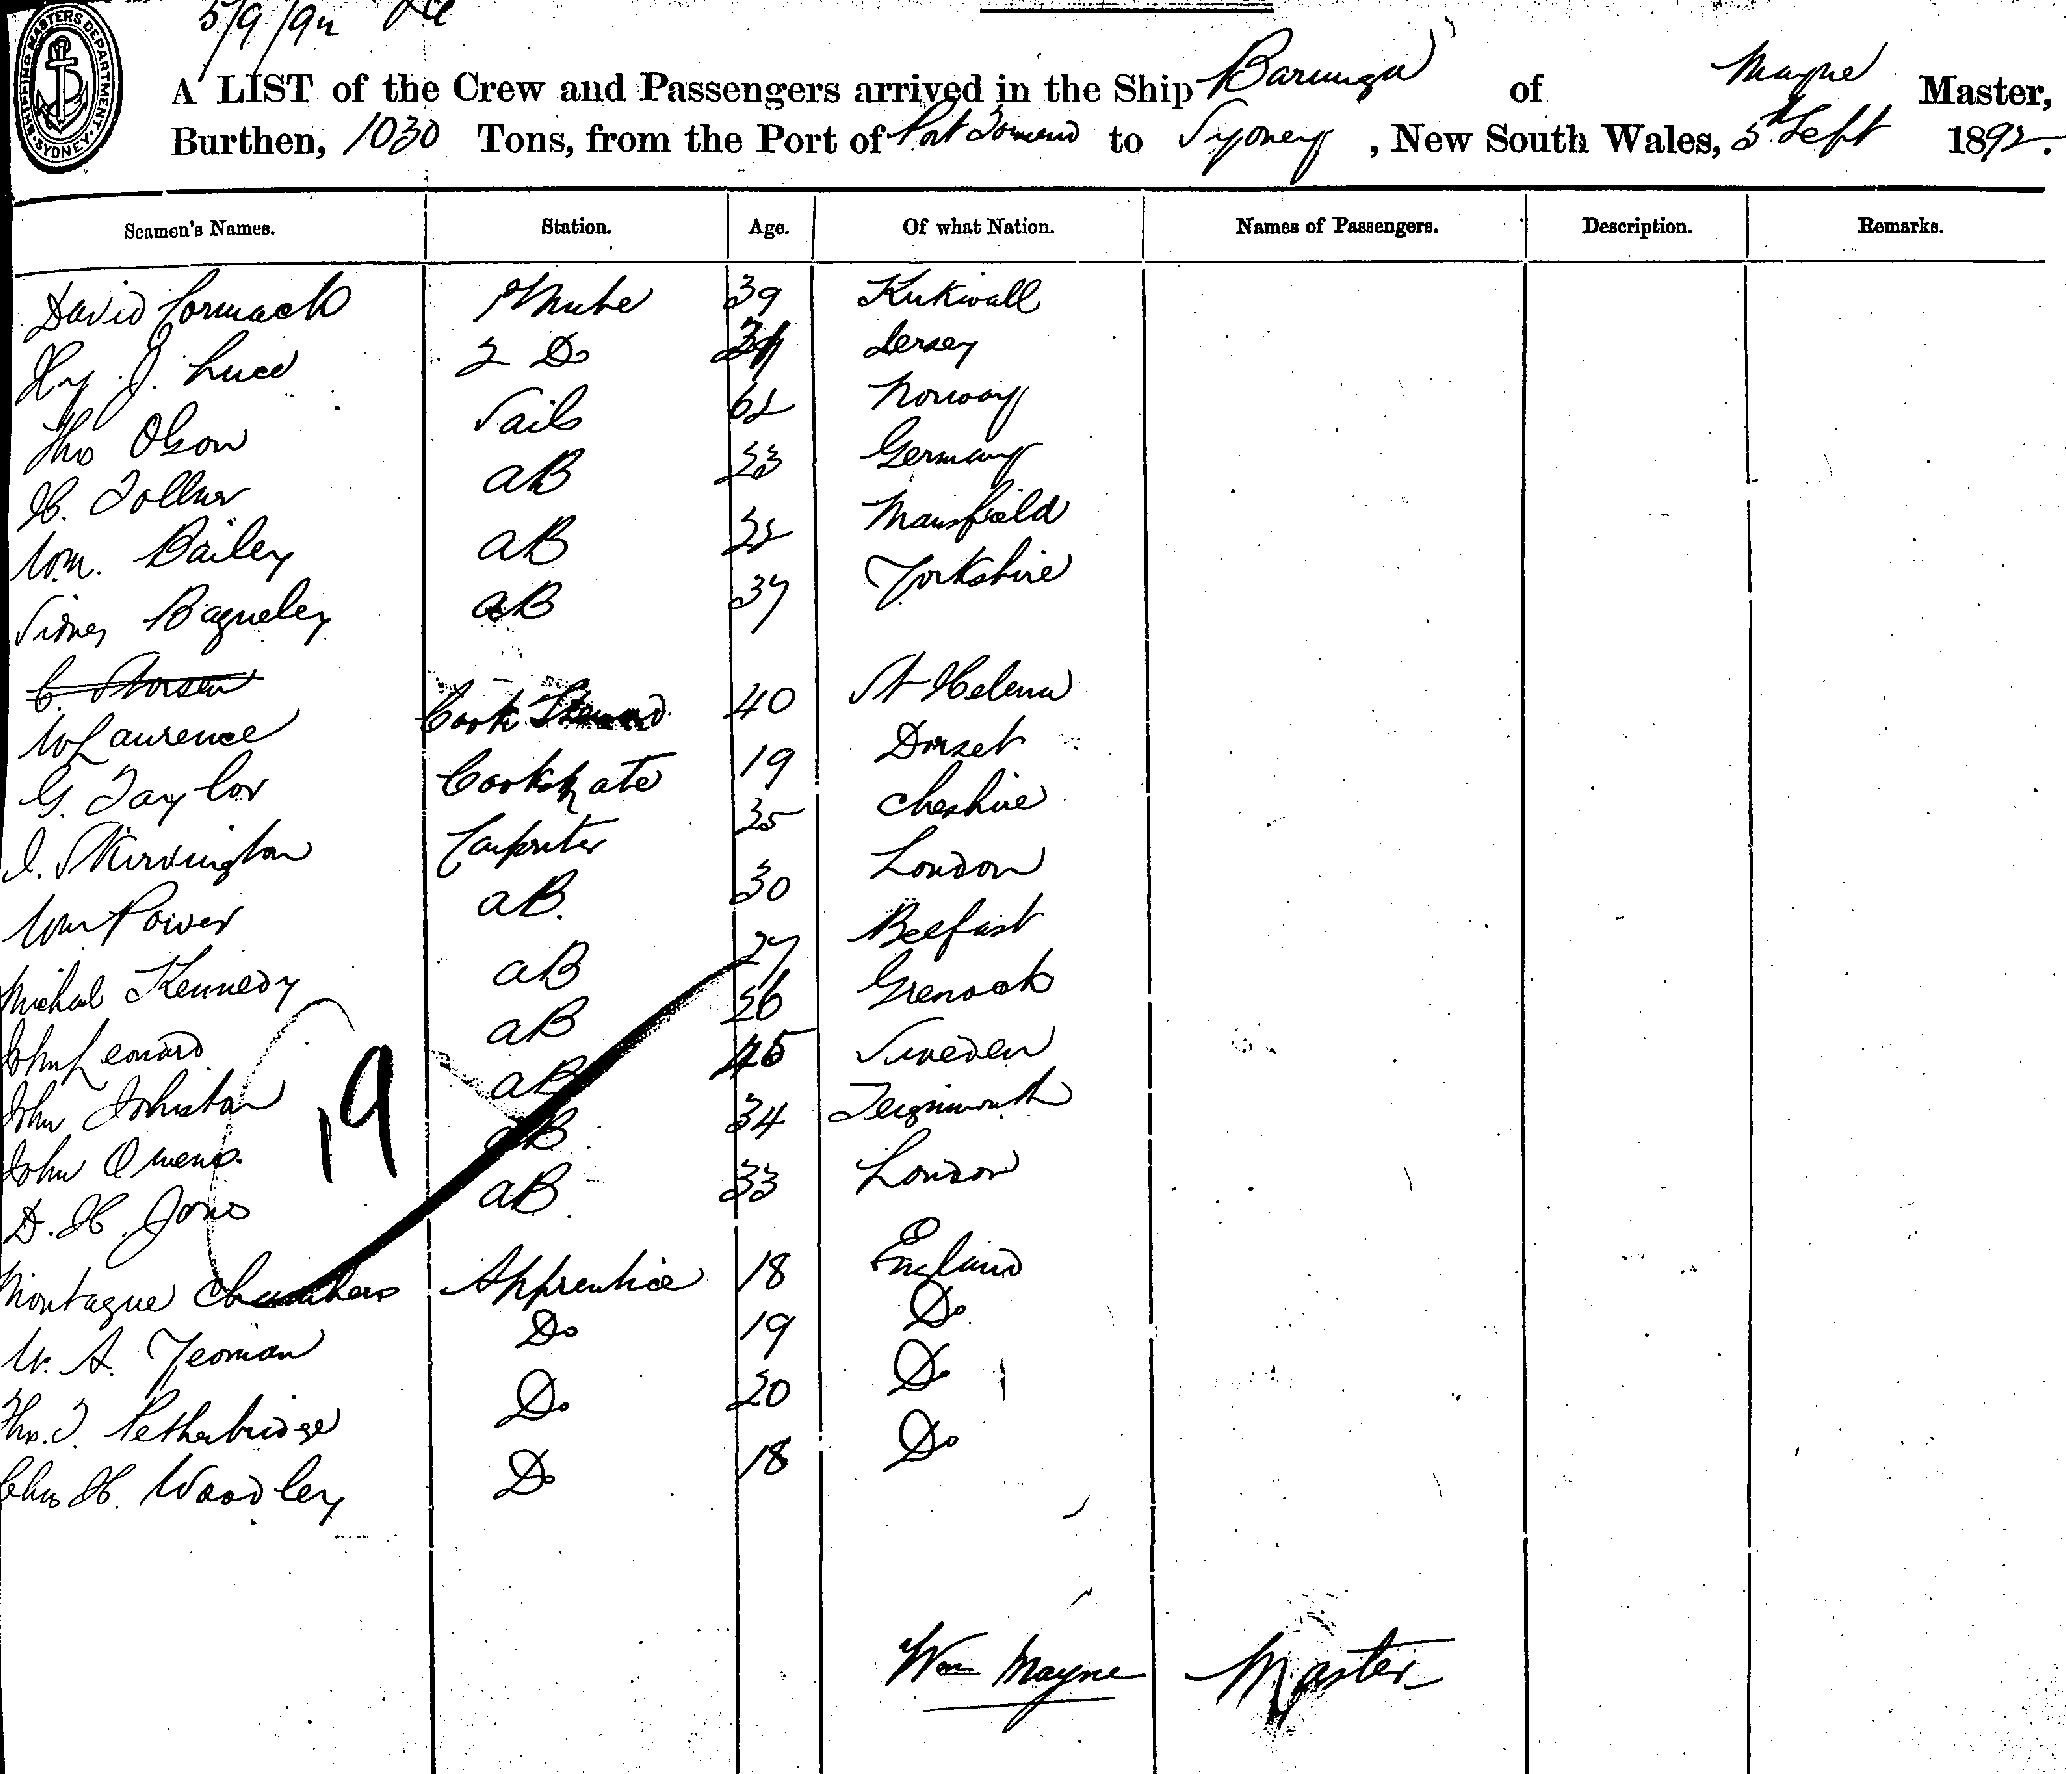 5/9/92
SHIPPING MASTERS DEPARTMENT SYDNEY
A LIST of the Crew and Passengers arrived in the Ship Barunga of Mayne Master,
Burthen, 1030 Tons, from the Port of Port to Sydney, New South Wales, 5th Sept 1892.
Seamen's Names. Station. Age. Of what Nation. Names of Passengers. Description. Remarks.
David Cormack 1st Mate 39 Kirkwall
Hy. J. Luce 2 Do Jersey
Tho Olson Sails 62 Norway
H. Tollner AB 23 Germany
Wm. Bailey AB 22 Mansfield
Sidney Bagueley AB 37 Yorkshire
C.
W Laurence Cook Steward 40 St Helena
G. Taylor Cooks Mate 19 Dorset
J. Skirvington Carpenter 35 Cheshire
Wm Power AB. 30 London
Michael Kennedy AB 27 Belfast
John Leonard AB 26 Grenock
John Johnston AB 45 Sweden
John Owens. AB 34 Teignmouth
D. H. Jones AB 33 London
19
Montague Chambers Apprentice 18 England
W. A. Yeoman Do 19 Do
Tho. J. Petherbridge Do 20 Do
Chas H. Woodley Do 18 Do
Wm Mayne Master